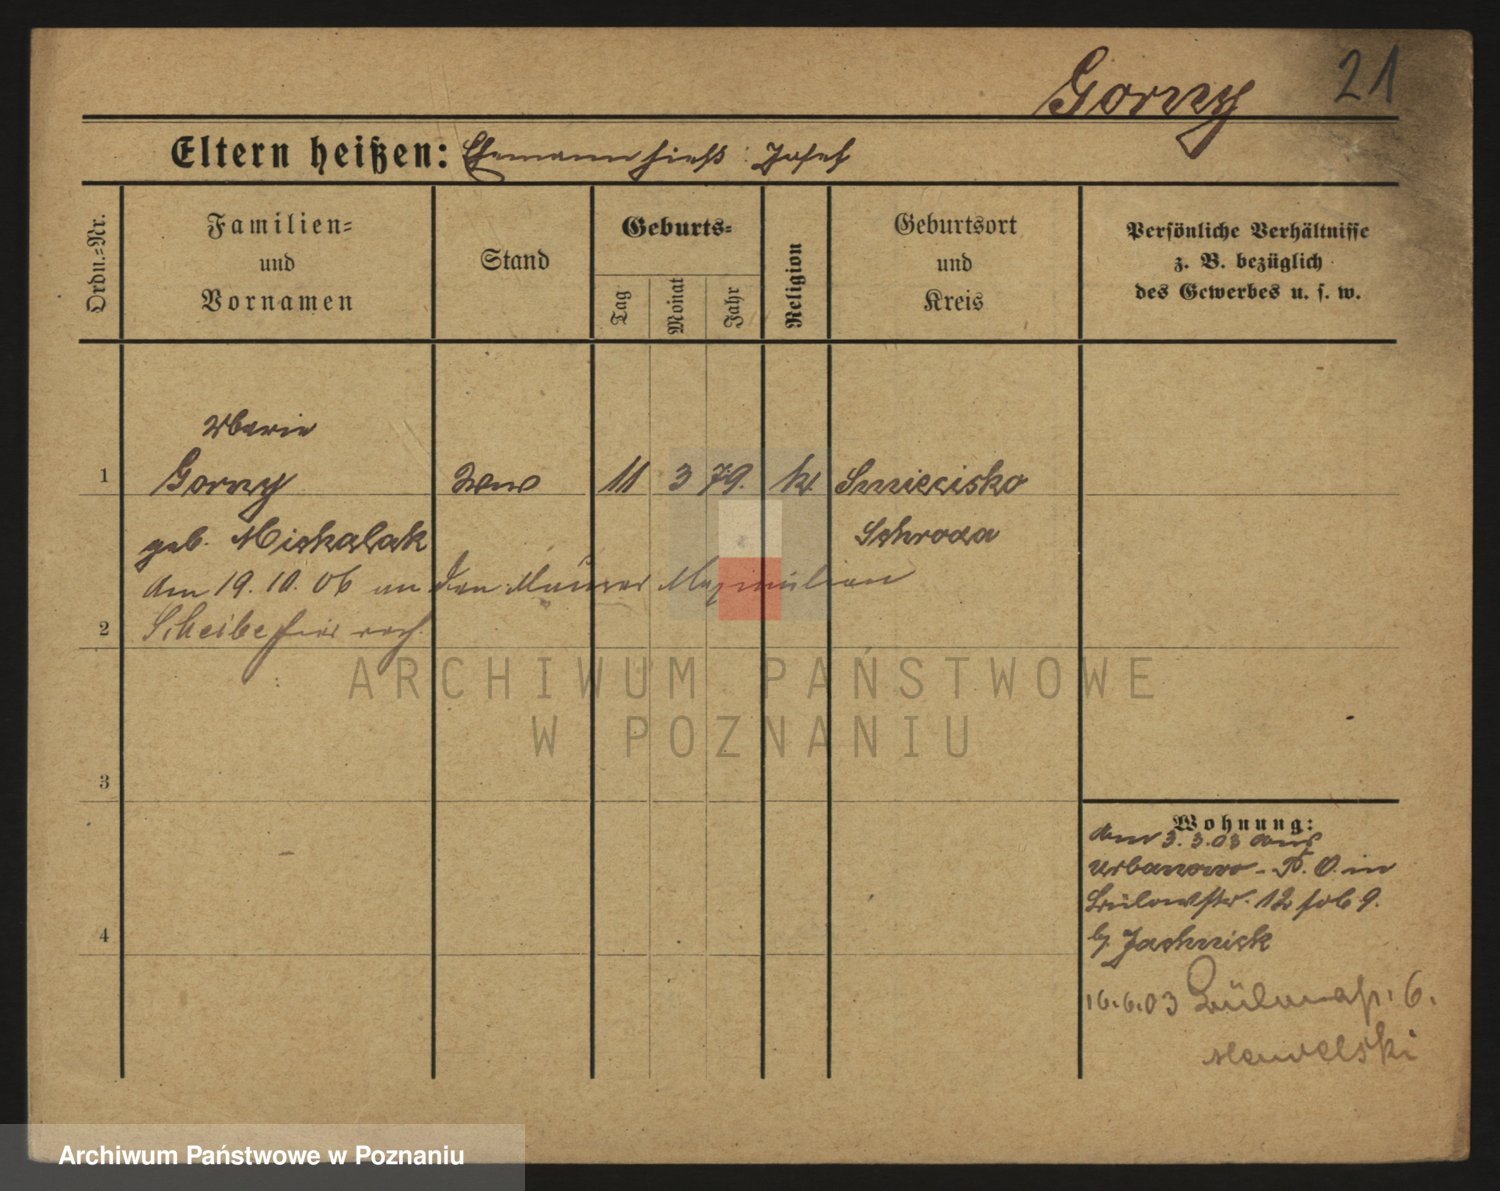 Gorny
21
Eltern heißen: Ehemann hieß: Josef
Ordn.-Nr.
Familien-
und
Vornamen
Stand
Geburts-
Tag
Monat
Jahr
Religion
Geburtsort
und
Kreis
Persönliche Verhältnisse
z. B. bezüglich
des Gewerbes u. s. w.
Marie
1 Gorny Wwe 11 3 79. k. Sniecisko
geb. Michalak Schroda
Am 19. 10. 06 an den Maurer Maximilian
2 Scheibe hier verh.
ARCHIWUM PAŃSTWOWE
W POZNANIU
3
4
Wohnung:
Am 3. 3. 03 aus
Urbanowo - P. O. in
Bülowstr. 12
b/ Jachnick
16.6.03 Bülowstr. 6.
Archiwum Państwowe w Poznaniu